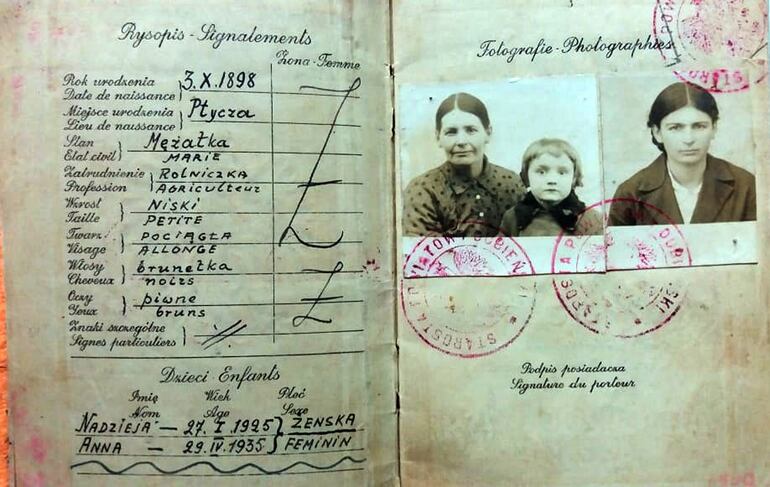 Rysopis - Signalements
Żona - Femme
Rok urodzenia 3. X. 1898
Date de naissance
Miejsce urodzenia Ptycza
Lieu de naussance
Stan Mężatka
Etat civil MARIE
Zatrudnienie ROLNICZKA
Profession AGRICULTEUR
Wzrost NISKI
Taille PETITE
Twarz POCIĄGŁA
Visage ALLONGE
Włosy brunetka
Cheveux noirs
Oczy piwne
Yeux bruns
Znaki szczególne
Signes particuliers
Dzieci - Enfants
Imię Wiek Płeć
Nom Age Sexe
NADZIEJA - 27. I. 1925 ŻENSKA
ANNA - 29. IV. 1935 FEMININ
Fotografie - Photographies
STAROSTA POWIATOWY DUBIEŃSKI
STAROSTA DUBIEŃSKI
STARO
Podpis posiadacza
Signature du porteur